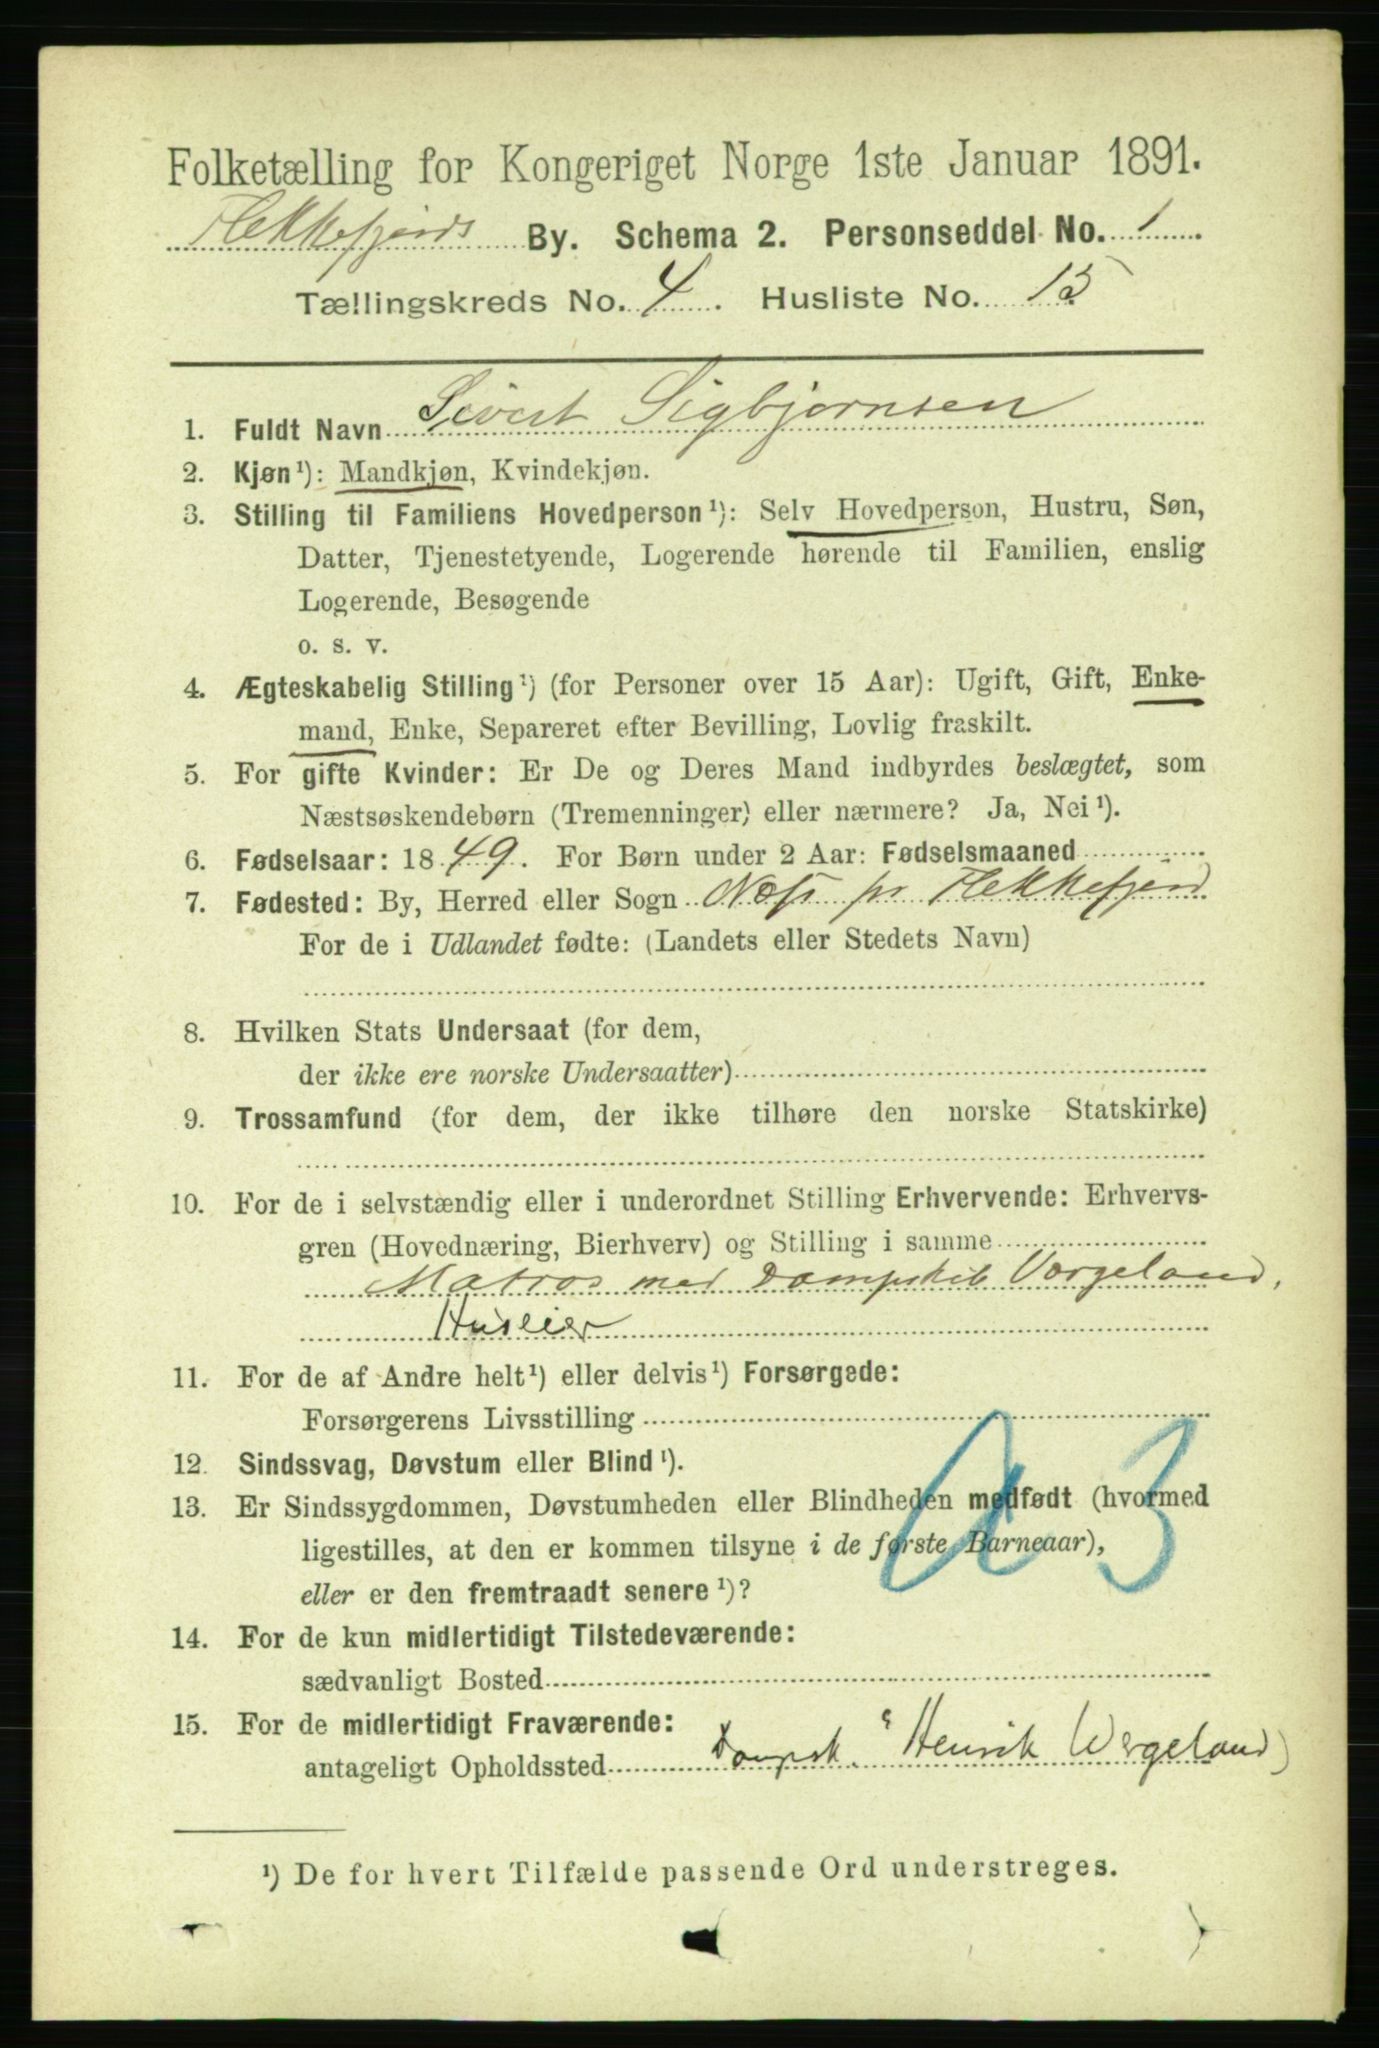 Folketælling for Kongeriget Norge 1ste Januar 1891.
Flekkefjords By. Schema 2. Personseddel No. 1.
Tællingskreds No. 4. Husliste No. 15
1. Fuldt Navn Sivert Sigbjørnsen
2. Kjøn¹): Mandkjøn, Kvindekjøn.
3. Stilling til Familiens Hovedperson¹): Selv Hovedperson, Hustru, Søn,
Datter, Tjenestetyende, Logerende hørende til Familien, enslig
Logerende, Besøgende
o. s. v.
4. Ægteskabelig Stilling¹) (for Personer over 15 Aar): Ugift, Gift, Enke-
mand, Enke, Separeret efter Bevilling, Lovlig fraskilt.
5. For gifte Kvinder: Er De og Deres Mand indbyrdes beslægtet, som
Næstsøskendebørn (Tremenninger) eller nærmere? Ja, Nei¹).
6. Fødselsaar: 1849. For Børn under 2 Aar: Fødselsmaaned
7. Fødested: By, Herred eller Sogn Næs pr Flekkefjord
For de i Udlandet fødte: (Landets eller Stedets Navn)
8. Hvilken Stats Undersaat (for dem,
der ikke ere norske Undersaatter)
9. Trossamfund (for dem, der ikke tilhøre den norske Statskirke)
10. For de i selvstændig eller i underordnet Stilling Erhvervende: Erhvervs-
gren (Hovednæring, Bierhverv) og Stilling i samme
Matros med Dampskib Vergeland,
Huseier
11. For de af Andre helt¹) eller delvis¹) Forsørgede:
Forsørgerens Livsstilling
12. Sindssvag, Døvstum eller Blind¹).
13. Er Sindssygdommen, Døvstumheden eller Blindheden medfødt (hvormed
ligestilles, at den er kommen tilsyne i de første Barneaar),
eller er den fremtraadt senere¹)?
14. For de kun midlertidigt Tilstedeværende:
sædvanligt Bosted
15. For de midlertidigt Fraværende:
antageligt Opholdssted Dampsk. "Henrik Wergeland)
¹) De for hvert Tilfælde passende Ord understreges.